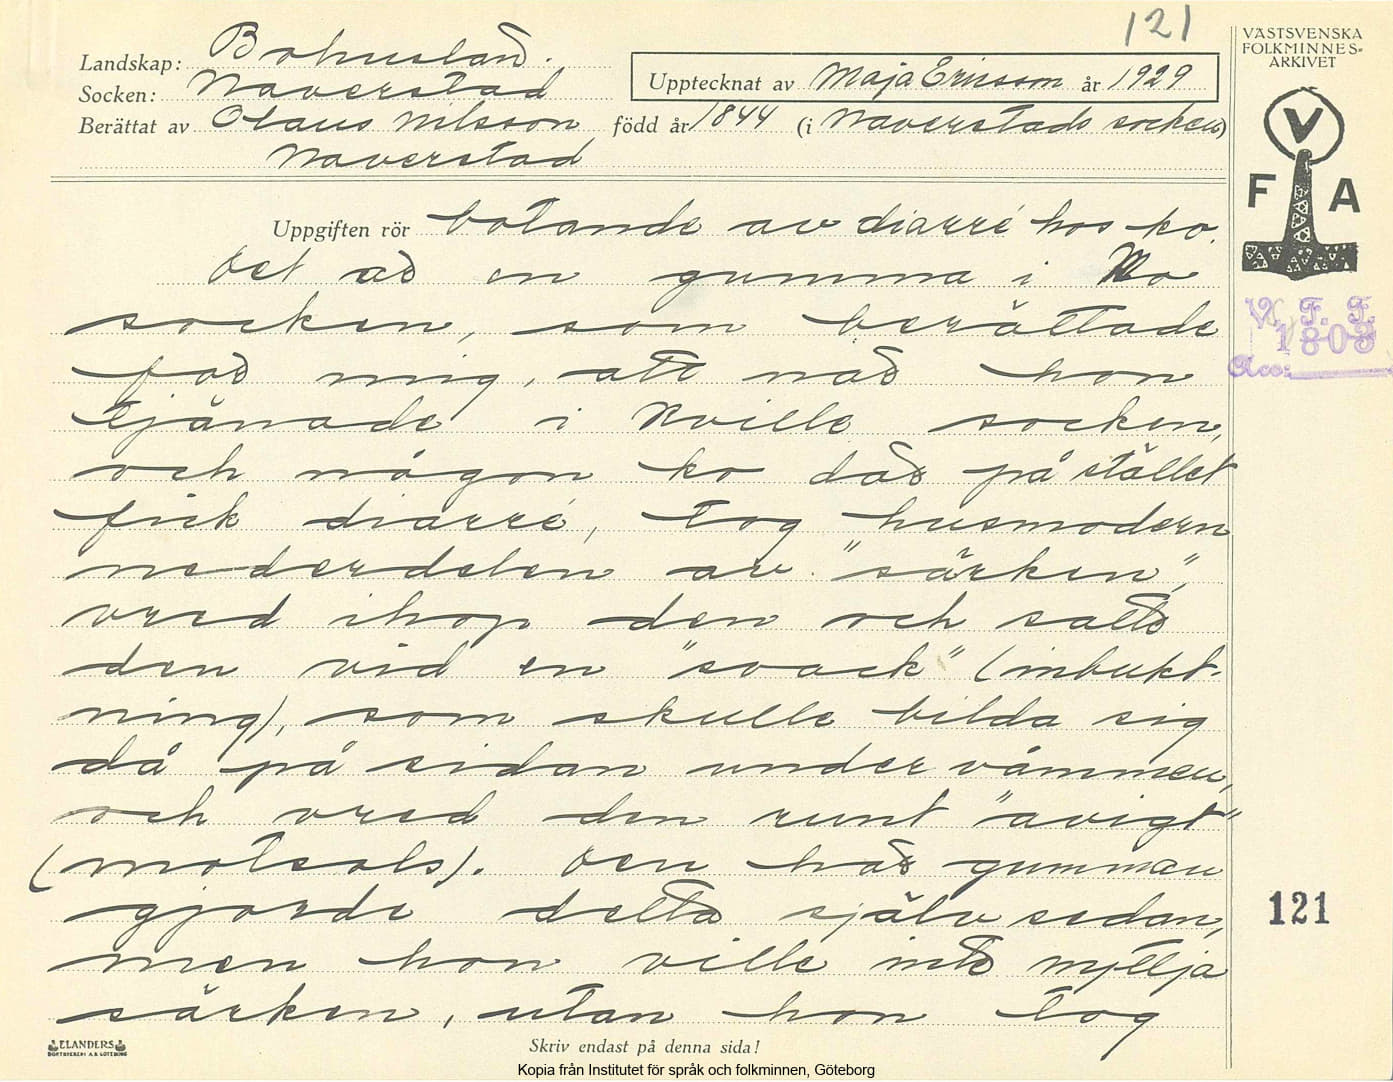 121
VÄSTSVENSKA
FOLKMINNES-
ARKIVET
Landskap: Bohuslän.
Socken: Naverstad
Upptecknat av Maja Ericsson år 1929
Berättat av Olaus Nilsson född år 1844 (i Naverstads socken)
Naverstad
V
F A
Uppgiften rör botande av diarré hos ko.
Det är en gumma i Mo
socken, som berättade
för mig, att när hon
tjänade i Kville socken,
och någon ko där på stället
fick diarré, tog husmodern
nederdelen av "särken",
vred ihop den och satte
den vid en "svack" (inbukt-
ning), som skulle bilda sig
då på sidan under våmmen,
och vred den runt "avigt"
(motsols). Den här gumman
gjorde detta själv sedan,
men hon ville inte nyttja
särken, utan hon tog
V. F. F.
1803
Acc:
121
ELANDERS
BOKTRYCKERI A.B. GÖTEBORG
Skriv endast på denna sida!
Kopia från Institutet för språk och folkminnen, Göteborg